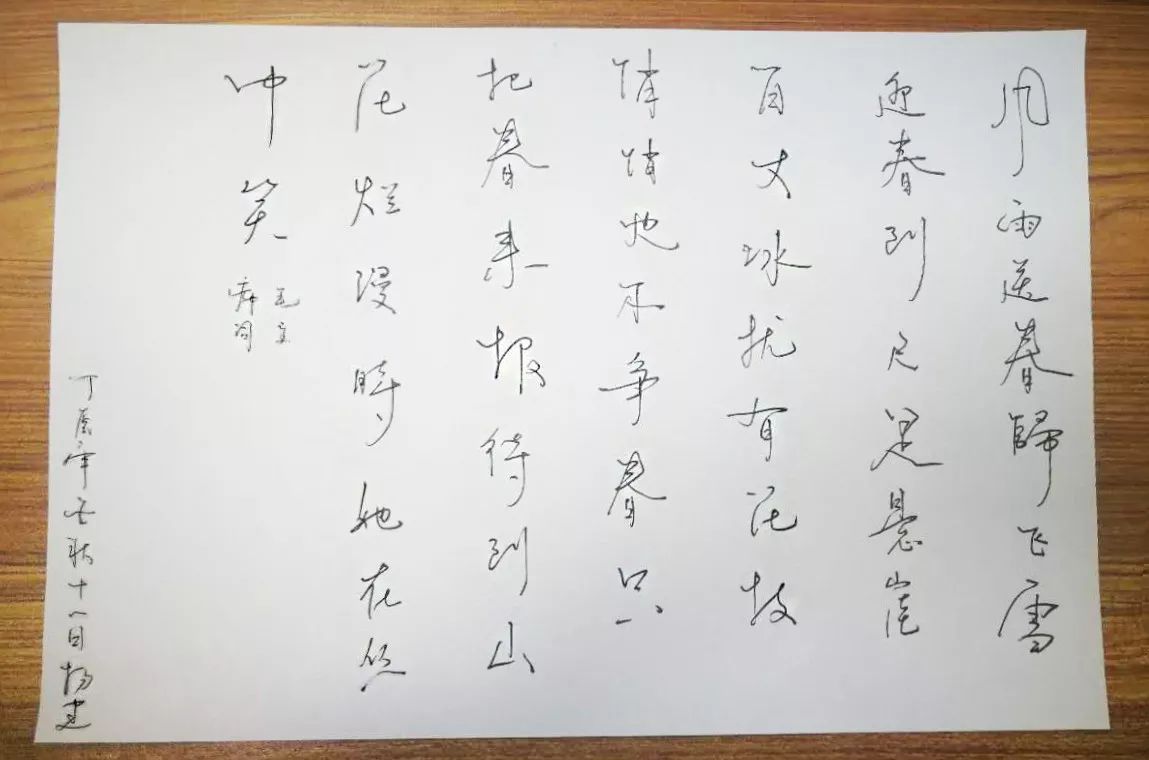 风雨送春歸飞雪
迎春到已是悬崖
百丈冰犹有花枝
俏俏也不争春只
把春来报待到山
花烂漫時她在丛
中笑
毛主
席词